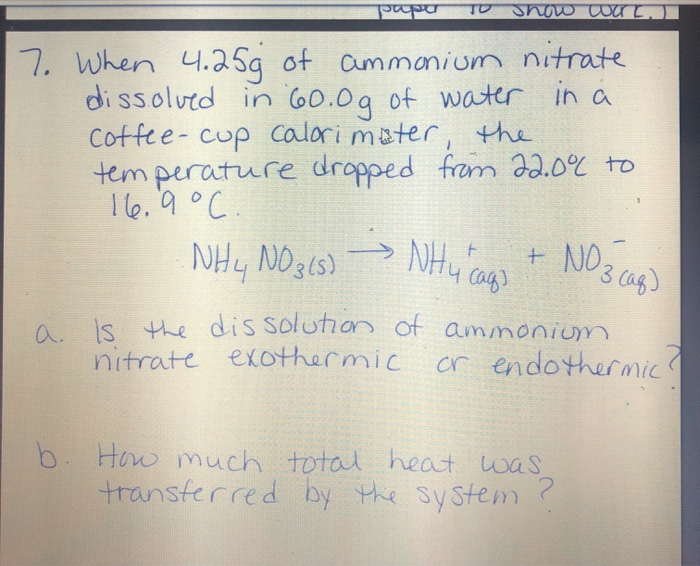 paper to show work.)
7. When 4.25g of ammonium nitrate
dissolved in 60.0g of water in a
coffee-cup calorimeter, the
temperature dropped from 22.0°C to
16.9°C.
NH4NO3(s) → NH4+(aq) + NO3-(aq)
a. Is the dissolution of ammonium
nitrate exothermic or endothermic?
b. How much total heat was
transferred by the system?